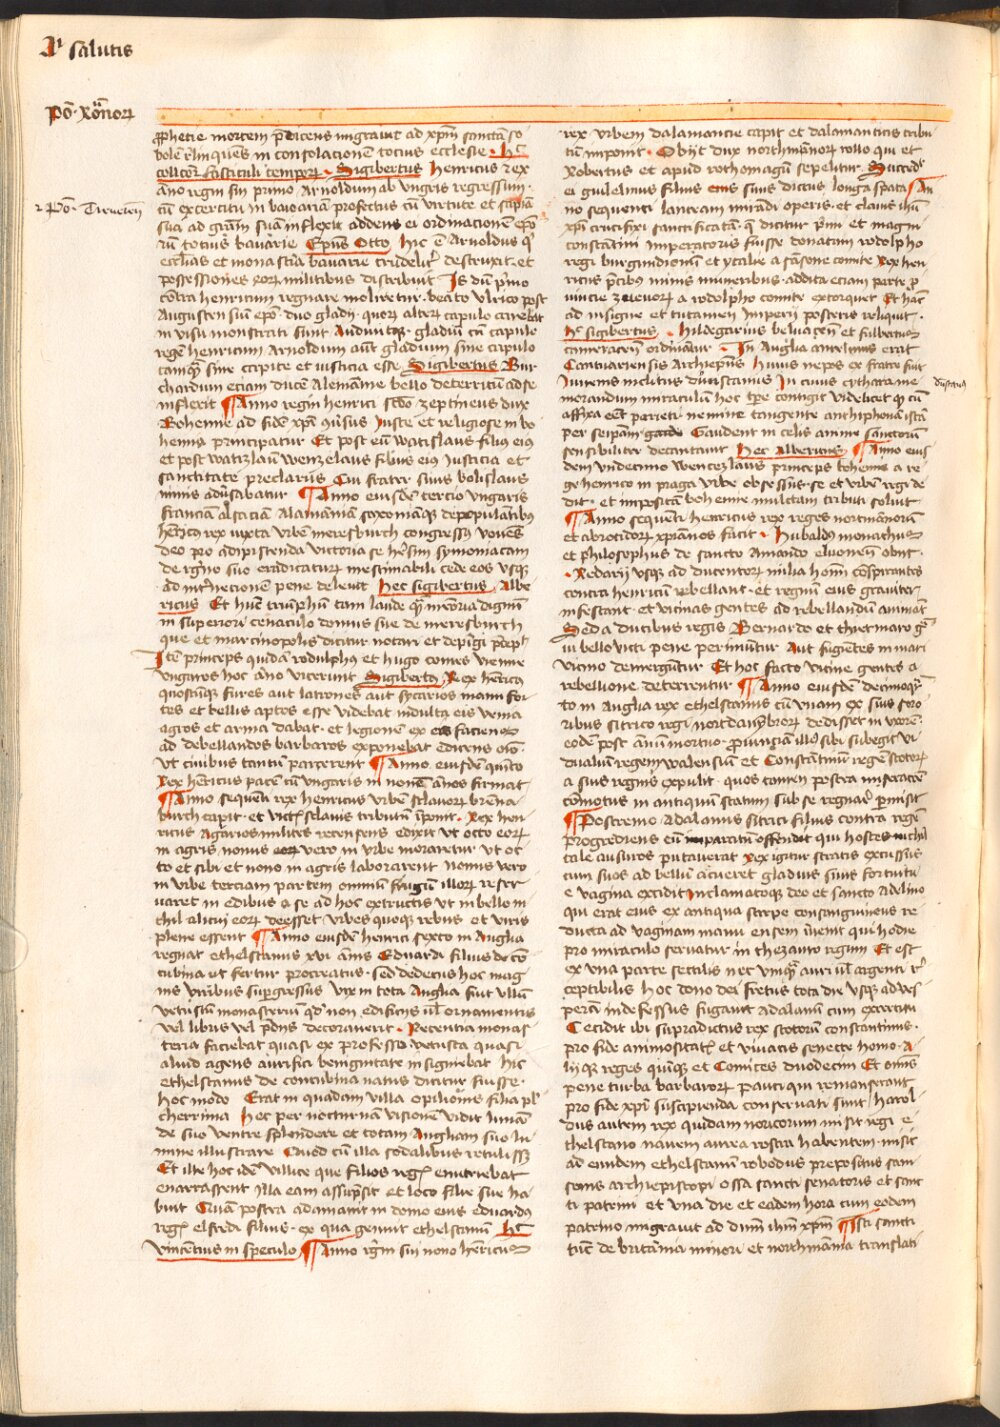 An salutis
Põ. Xõnorꝝ
2 Põ. Tirenen̄
ꝓphetie mortem p̄dicens migrauit ad xp̄m sanctā so
bolē r̄linquēs in consolacionē tocius ecclesie · hͨ
collecͦꝝ fasciculi temporꝝ · Sigibertus Henricus rex
āno regni sui primo Arnoldum ab vngris regressum ·
cū exercitu in baioariā profectus cū virtute et sapīa
sua ad grām suā inflexit addens ei ordinacionē epõ
rū totius bauarie Ep̄us Otto hic ē Arnoldus qͥ
ecclīas et monastīa bauarie crudelitͬ destruxit · et
possessiones eoꝝ militibus distribuit Is dū pͥmo
cōtra henricum regnare moliretur · beato vlrico post
Augusten siū epõ · duo gladij · quoꝝ alterͣ capulo carebat
in visu monstrati sunt Auditūqꝫ · gladiū cū capulo
regē henricum Arnoldum aūt gladium sine capulo
tamqͣꝫ sine capite et iusticia esse Sigibertus Bur
chardum eciam ducē Alemānie bello deterritū ad se
inflexit ¶ Anno regni henrici scd̄o zeptineus dux
Bohemie ad fidē xp̄i ꝯuersus Iuste et religiose in bo
hemia principatur Et post eū Watislaus filius eiꝰ
et post watizlaū Wenzelaus filius eiꝰ Iusticia et
sanctitate preclarus Cui frater suus bolislaus
nimis aduersabatur ¶ Anno eiusdē tercio vngaris
franciā alsaciā Alamāniā saxoniāqꝫ depopulātibꝰ
hēricꝰ rex iuxta vrbē meresburch congressꝰ vouēs
deo pro adipiscenda victoria se hēsim symoniacam
de regno suo eradicaturꝫ inestimabili cede eos vsqꝫ
ad int̄necionē pene deleuit Hec sigibertus Albe
ricus Et hūc triūphū tam laude qͣꝫ memoria dignū
in superiori cenaculo domus sue de meresburch
que et marcinopolis dicitur notari et depingi p̄cepͭ
Itē princeps quidā rodulphꝰ et hugo comes vienne
vngaros hoc āno vicerunt Sigibertꝰ Rex hēricꝰ
quoscūqꝫ fures aut latrones aut sycarios manu for
tes et bellis aptos esse videbat indulta eis venia
agros et arma dabat · et legionē ex eis faciens
ad debellandos barbaros exponebat edicens eis
vt ciuibus tantū parcerent ¶ Anno eiusdē quīto
Rex hēricus pacē cū vngaris in nonē ānos firmat
¶ Anno sequēti rex henricus vrbē sclauoꝝ brēna
burch capit · et victis sclauis tributū īponit · Rex hen
ricus agarios milites recensens edixit vt octo eoꝝ
in agris nonus eoꝝ vero in vrbe moraretur vt oc
to et sibi et nono in agris laborarent nonus vero
in vrbe terciam partem omniū frugū illoꝝ refer
uaret in edibus a se ad hoc extructis vt in bello ni
chil alicui eoꝝ deesset vrbes quoqꝫ rebus et viris
plene essent ¶ Anno eiusdē henrici sexto in Anglia
regnat ethelstanus xvi ānis Eduardi filius de cō
cubina vt fertur procreatus · sed dedecus hoc mag
nis viribus supergressus Vix in tota Anglia fuit vllū
vetustū monasteriū qd̄ non edificijs uͭl ornamentis
vel libris vel p̄dijs decorauerit · Recentia monas
teria faciebat quasi ex professo vetusta quasi
aliud agens aurifici benignitate insigniebat hic
ethelstanus de concubina natus dicitur fuisse ·
hoc modo Erat in quadam villa opilionis filia pͭl
cherrima hec per nocturnā visionē vidit lunā
de suo ventre splendere et totam Angliam suo lu
mine illustrare Quod cū illa sodalibus retulisꝫ
Et ille hoc idē villice que filios regꝭ enutriebat
enarrassent Illa eam assūpsit et loco filie sue ha
buit Quā postea adamauit in domo eius eduardꝰ
regꝭ elfredi filius · ex qua genuit ethelstanū hͨ
vincentius in speculo ¶ Anno rg̃ni sui nono hēricus
rex vrbem dalamancie capit et dalamanticis tribu
tū imponit · Obijt dux northmānoꝝ rollo qui et
Robertus et apud rothomagū sepelitur Succedͭ
ei guilelmus filius eius suus dictus longa spata An
no sequenti lanceam mirādi operis · et clauis ihū
xp̄i crucifixi sanctificatā · q̄ dicitur pͥmi et magni
constātini imperatoris fuisse donatam rodolpho
regi burgundionū et ytalie a samsone comite Rex hen
ricus p̄cibus minis muneribus · addita eciam parte ꝓ
uincie zueuoꝝ a rodolpho comite extorquet Et hāc
ad insigne et tutamen Imperij posteris reliquit ·
hͨ sigibertus · hildegarius beluacen̄ et fulbertus
cameracen̄ ordināntur · In Anglia ancelmus erat
Cantuariensis Archiep̄us huius neps ex fratre fuit
Iuuenis inclitus dunstanus In cuius cythara me
dunstanꝰ
morandum miraculū hoc tp̄e contigit videlicet qͥ cū
affixa eēt parieti · nemine tangente anthiphonā istā
per seipsam Gaudent in celis anime sanctorū
sensibiliter decantauit Hec Albericus ¶ Anno eius
dem vndecimo wenezlaus princeps bohemie a re
ge henrico in praga vrbe obsessus · se et vrbē regi de
dit · et impositā bohemie mulctam tributi soluit
¶ Anno sequēti henricus rex reges nortmānorū
et abrotidoꝝ xp̄ianos facit · hubaldꝰ monachus
et philosophus de sancto Amando eluonen̄ obijt ·
· Redarij vsqꝫ ad ducentoꝝ milia homī cōspirantes
contra henricū rebellant · et regnū eius grauiter
infestant · et vicinas gentes ad rebellandū animāt
Sed a ducibus regis Bernardo et thietmaro gͣ
ui bello victi pene perimūtur Aut fugientes in mari
vicino demergūtur Et hoc facto vicine gentes a
rebellione deterrentur ¶ Anno eiusdē decimoqͣr
to in Anglia rex ethelstanus cū vnam ex suis soro
ribus sitrico regi nortdanhybroꝝ dedisset in vxorē ·
eodē post ānū mortuo · prouinciā illiꝰ sibi subegit Vi
dualiū regem walensiū et Constantinū regē scotorꝝ
a suis regnis expulit · quos tamen postea miseracōe
cōmotus in antiquū statum sub se regnare permisit
¶ Postremo Adalanus sitrici filius contra regē
progrediens eū imparatū offendit qui hostes nichil
tale ausuros putauerat Rex igitur stratis excussus
cum suos ad bellū acueret gladius suus fortuitu
e vagina excidit Inclamatoqꝫ deo et sancto Adelino
qui erat eius ex antiqua stirpe consanguineus re
ducta ad vaginam manu ensem īuenit qui hodie
pro miraculo seruatur in thezauro regum Et est
ex vna parte sectilis nec vnqͣ auri uͭl argenti rͤ
ceptibilis hoc dono dei fretus tota die vsqꝫ ad ves
perā indefessus fugauit adalanū cum exercitu
Cecidit ibi supradictus rex scotorū constantinus ·
pro fide animositatꝭ et viuacis senecte homo · A
lijqꝫ reges quīqꝫ et Comites duodecim Et omīs
pene turba barbaroꝝ pauci qui remanserant
pro fide xp̄i suscipienda conseruati sunt harol
dus autem rex quidam noricorum misit regi e
thelstano nauem aurea rostra habentem · misit
ad eundem ethelstanū robodus prepositus sam
sonis archiepiscopi ossa sancti senatoris et sanc
ti paterni et vna die et eadem hora cum eodem
paterno migrauit ad dn̄m ihm̄ xp̄m ¶ Isti sancti
tūc de britānia minori et northmānia translati